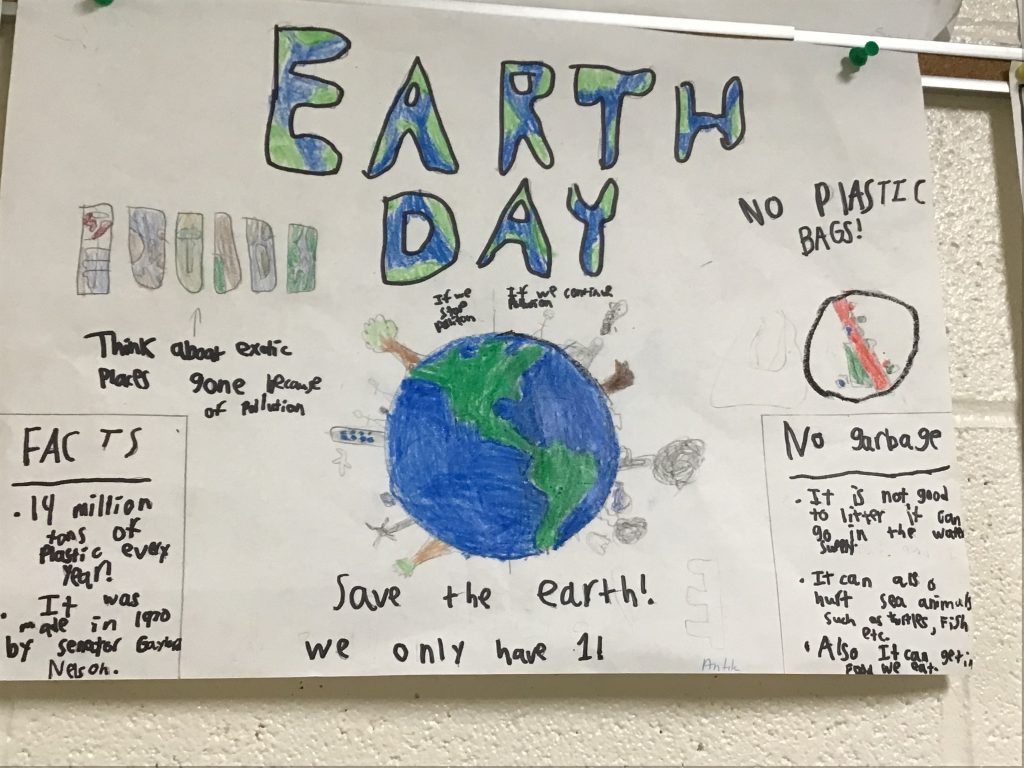 EARTH
DAY
NO PLASTIC
BAGS!
If we
stop
pollution
If we continue
Pollution
Think about exotic
Places gone because
of Pollution
FACTS
. 14 million
tons of
Plastic every
Year!
. It was
made in 1970
by senator
Nelson.
No garbage
. It is not good
to litter it can
go in the
. It can also
hurt sea animals
such as turtles, Fish
etc.
. Also It can get in
Food we eat.
Save the earth!
we only have 1!
Antik